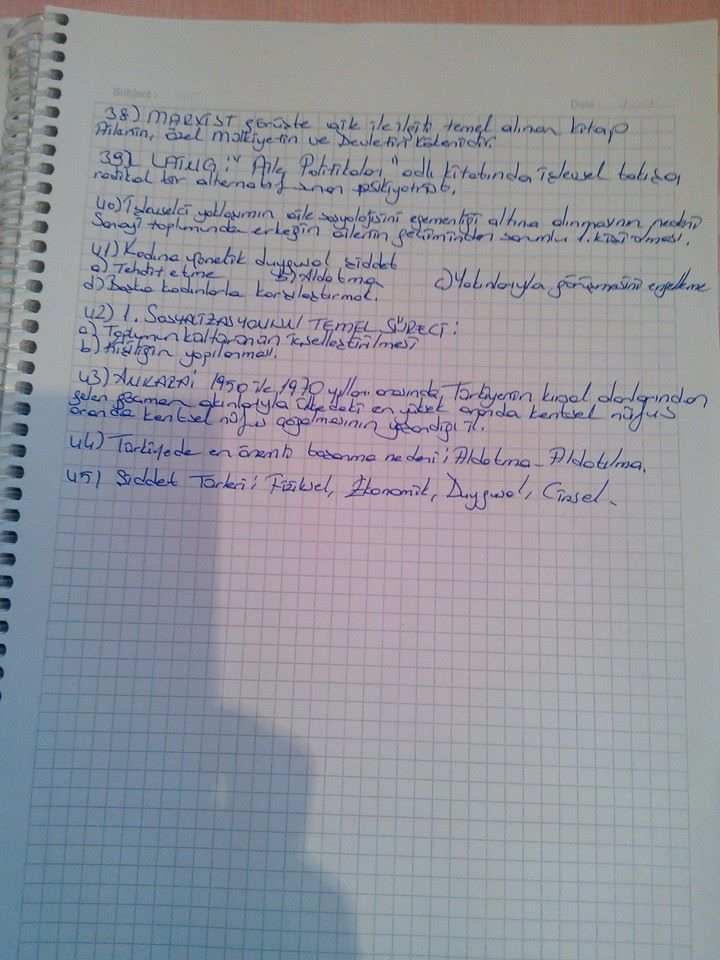 Subject :
Date :
38) MARXIST görüşte aile ile ilgili temel alınan kitap
Ailenin, özel mülkiyetin ve Devletin kökenidir.
39) LAING: "Aile Politikaları" adlı kitabında işlevsel bakışa
radikal bir alternatif sunan psikiyatrist.
40) İşlevselci yaklaşımın aile sosyolojisini egemenliği altına alınmasının nedeni
Sanayi toplumunda erkeğin ailenin geçiminden sorumlu 1. kişi olması.
41) Kadına yönelik duygusal şiddet
a) Tehdit etme b) Aldatma c) Yakınlarıyla görüşmesini engelleme
d) Başka kadınlarla karşılaştırmak.
42) 1. SOSYALİZASYONUN TEMEL SÜRECİ:
a) Toplumun kültürünün içselleştirilmesi
b) Kişiliğin yapılanması.
43) ANKARA: 1950 ile 1970 yılları arasında, Türkiyenin kırsal alanlarından
gelen göçmen akınlarıyla ülkedeki en yüksek oranda kentsel nüfus
oranda kentsel nüfus çoğalmasının yaşandığı il.
44) Türkiyede en önemli boşanma nedeni: Aldatma - Aldatılma.
45) Şiddet Türleri: Fiziksel, Ekonomik, Duygusal, Cinsel.